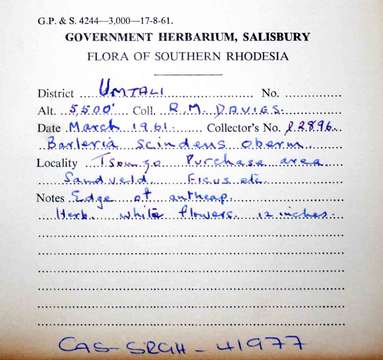 G.P. & S. 4244—3,000—17-8-61.
GOVERNMENT HERBARIUM, SALISBURY
FLORA OF SOUTHERN RHODESIA
District UMTALI No.
Alt. 5,500' Coll. R.M. DAVIES.
Date March 1961. Collector's No. 2896.
Barleria scindens Oberm.
Locality Purchase area
Sandveld Ficus etc.
Notes Edge of antheap.
Herb. white flowers. 12 inches.
CAS-SRGH-41977